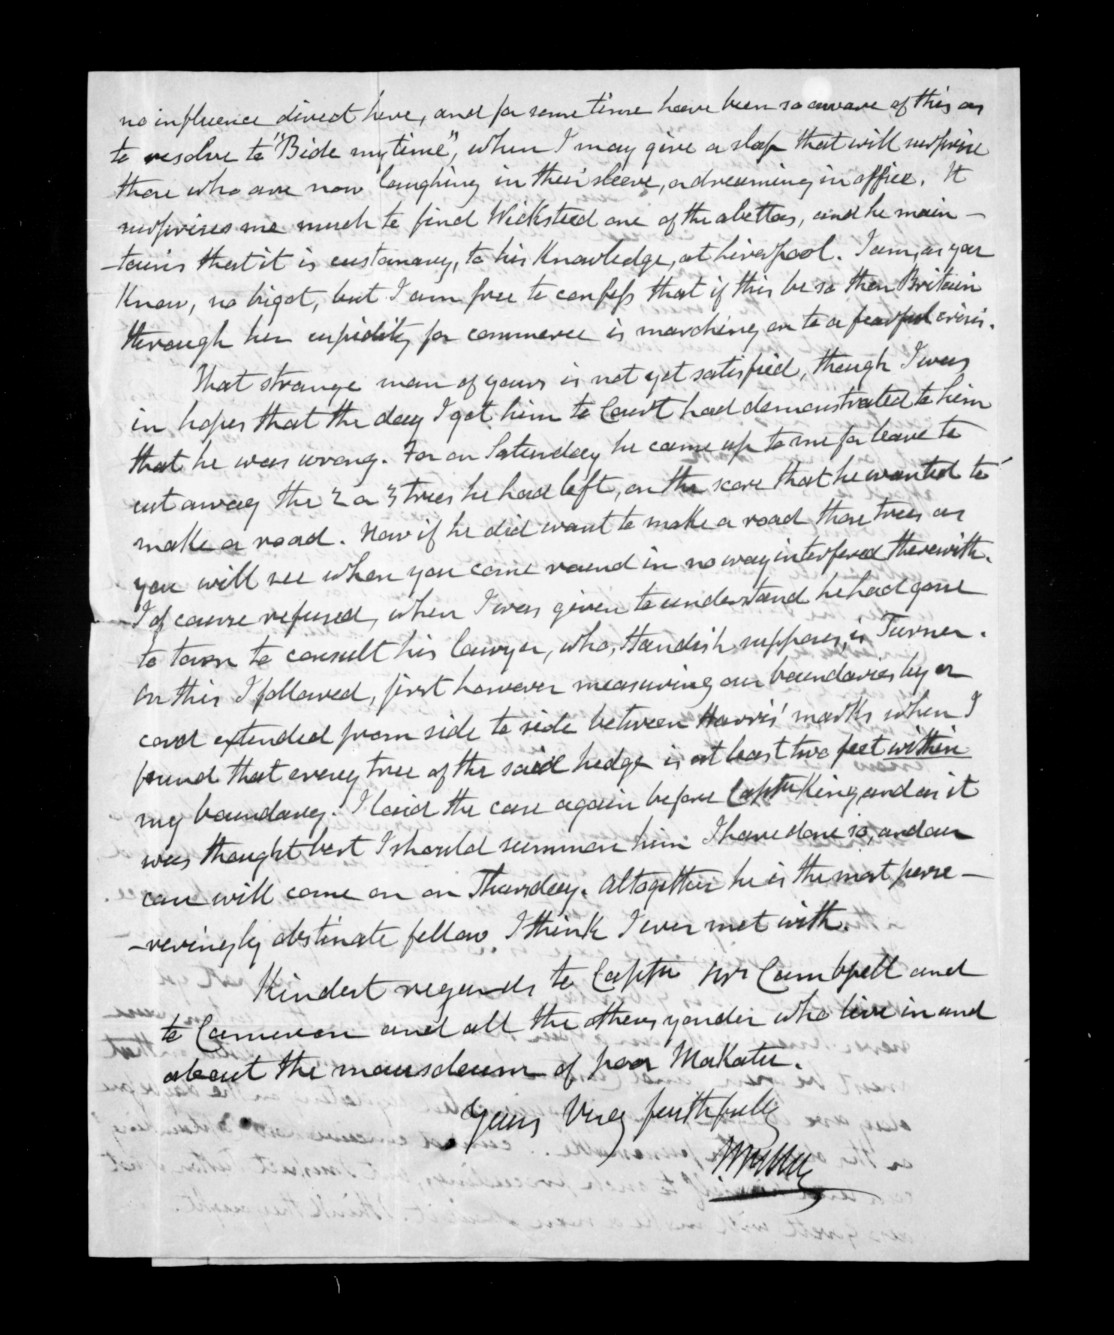 no influence direct here, and for some time have been so aware of this as
to resolve to "Bide my time", when I may give a slap that will surprise
those who are now laughing in their sleeve, or dreaming in office. It
surprises me much to find Wicksteed one of the abettors, and he main-
-tains that it is customary, to his Knowledge, at Liverpool. I am, as you
Know, no bigot, but I am free to confess that if this be so then Britain
through her cupidity for commerce is marching on to a fearful crisis.
That strange man of yours is not yet satisfied, though I was
in hopes that the day I got him to Court had demonstrated to him
that he was wrong. For on Saturday he came up to me for leave to
cut away the 2 or 3 trees he had left, on the score that he wanted to
make a road. Now if he did want to make a road those trees as
you will see when you come round in no way interfered therewith.
I of course refused, when I was given to understand he had gone
to town to consult his lawyer, who, Standish supposes, is Turner.
On this I followed, first however measuring our boundaries by a
cord extended from side to side between Harris' marks when I
found that every tree of the said hedge is at least two feet within
my boundary. I laid the case again before Captn King, and as it
was thought best I should summon him I have done so, and our
case will come on on Thursday. Altogether he is the most perse-
-veringly obstinate fellow I think I ever met with.
Kindest regards to Captn &amp; Mrs Campbell and
to Cameron and all the others yonder who live in and
about the mausoleum of poor Makatu.
Yours Very faithfully